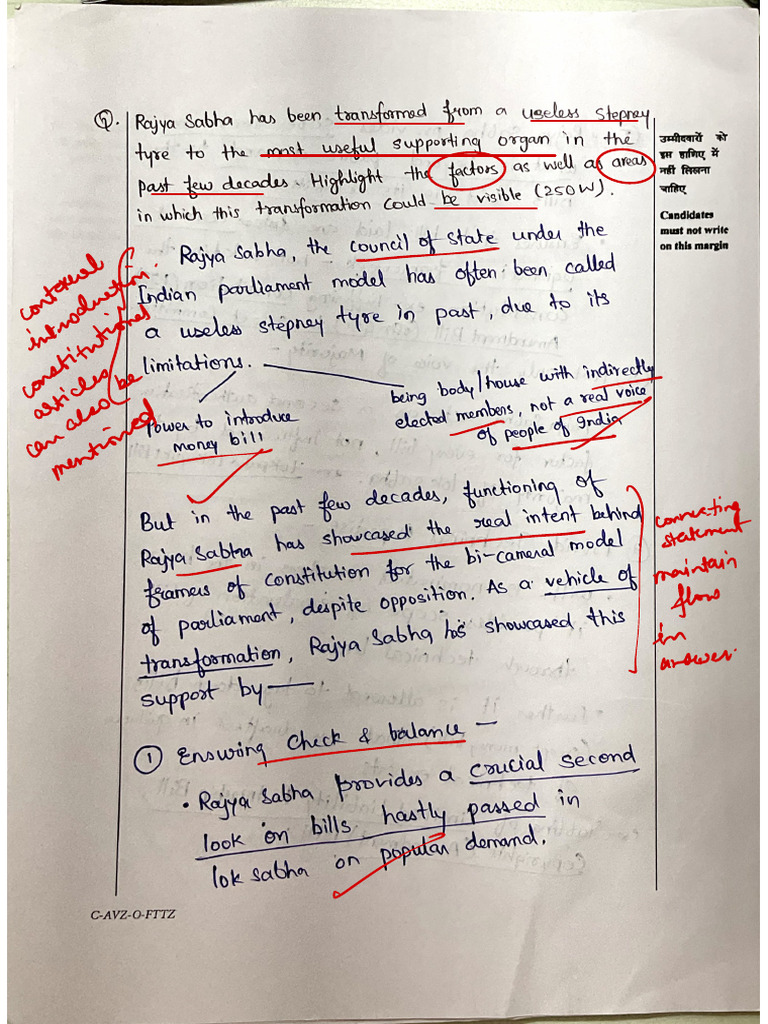 Q. Rajya Sabha has been transformed from a useless stepney
tyre to the most useful supporting organ in the
past few decades. Highlight the factors as well as areas
in which this transformation could be visible (250W).
उम्मीदवारों को
इस हाशिए में
नहीं लिखना
चाहिए
Candidates
must not write
on this margin
Rajya Sabha, the council of state under the
Indian parliament model has often been called
a useless stepney tyre in past, due to its
limitations.
contexual
introduction.
constitutional
articles
can also be
mentioned
Power to introduce
money bill
being body/house with indirectly
elected members, not a real voice
of people of India
But in the past few decades, functioning of
Rajya Sabha has showcased the real intent behind
framers of constitution for the bi-cameral model
of parliament, despite opposition. As a vehicle of
transformation, Rajya Sabha has showcased this
support by —
connecting
statement
maintain
flow
in
answer.
① Ensuring check & balance —
• Rajya Sabha provides a crucial second
look on bills hastly passed in
lok sabha on popular demand.
C-AVZ-O-FTTZ